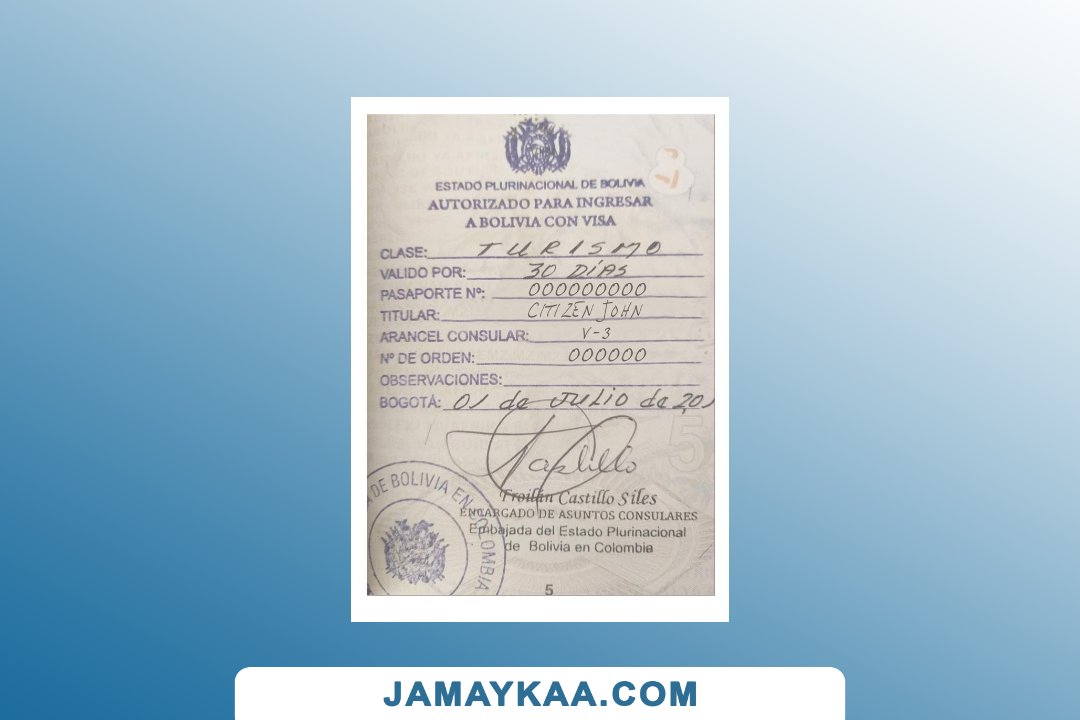 ESTADO PLURINACIONAL DE BOLIVIA
AUTORIZADO PARA INGRESAR
A BOLIVIA CON VISA
CLASE: TURISMO
VALIDO POR: 30 DÍAS
PASAPORTE Nº: 000000000
TITULAR: CITIZEN JOHN
ARANCEL CONSULAR: V-3
Nº DE ORDEN: 000000
OBSERVACIONES:
BOGOTÁ: 01 de JULIO de 201
Froilán Castillo Siles
ENCARGADO DE ASUNTOS CONSULARES
Embajada del Estado Plurinacional
de Bolivia en Colombia
DE BOLIVIA EN COLOMBIA
5
JAMAYKAA.COM